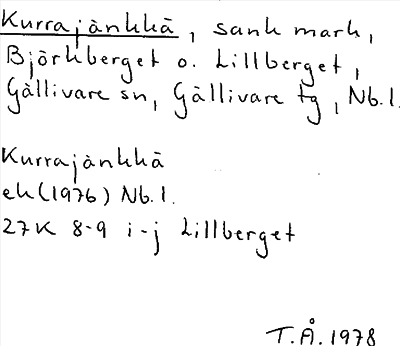 Kurrajänkkä, sank mark,
Björkberget o. Lillberget,
Gällivare sn, Gällivare tg, Nb.l.
Kurrajänkkä
ek (1976) Nb.l.
27K 8-9 i-j Lillberget
T.Å. 1978